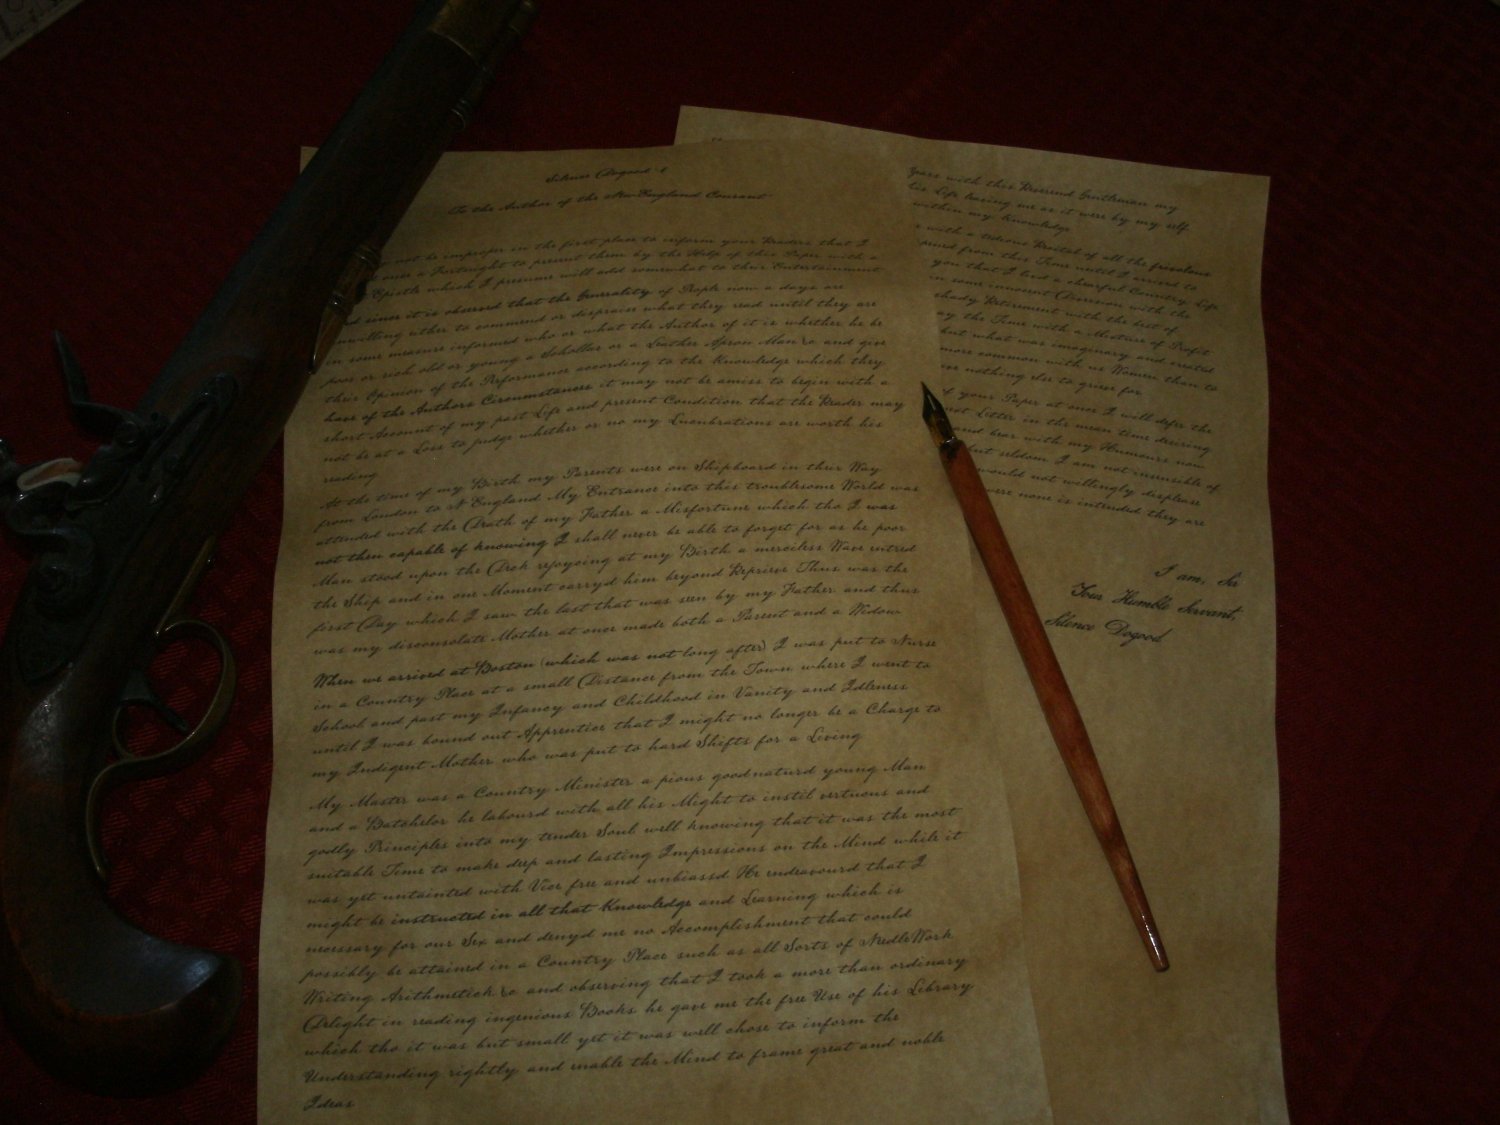 Silence Dogood 1
to the Author of the New-England Courant
not be improper in the first place to inform your Readers that I
once a Fortnight to present them by the Help of this Paper with a
Epistle which I presume will add somewhat to their Entertainment
since it is observed that the Generality of People now a days are
unwilling either to commend or dispraise what they read until they are
in some measure informed who or what the Author of it is whether he be
poor or rich old or young a Schollar or a Leather Apron Man &c and give
their Opinion of the Performance according to the Knowledge which they
have of the Authors Circumstances it may not be amiss to begin with a
short Account of my past Life and present Condition that the Reader may
not be at a Loss to judge whether or no my Lucubrations are worth his
reading
At the time of my Birth my Parents were on Shipboard in their Way
from London to N England My Entrance into this troublesome World was
attended with the Death of my Father a Misfortune which tho I was
not then capable of knowing I shall never be able to forget for as he poor
Man stood upon the Deck rejoycing at my Birth a merciless Wave entred
the Ship and in one Moment carryd him beyond Reprieve Thus was the
first Day which I saw the last that was seen by my Father and thus
was my disconsolate Mother at once made both a Parent and a Widow
When we arrived at Boston (which was not long after) I was put to Nurse
in a Country Place at a small Distance from the Town where I went to
School and past my Infancy and Childhood in Vanity and Idleness
until I was bound out Apprentice that I might no longer be a Charge to
my Indigent Mother who was put to hard Shifts for a Living
My Master was a Country Minister a pious goodnaturd young Man
and a Batchelor he labourd with all his Might to instil vertuous and
godly Principles into my tender Soul well knowing that it was the most
suitable Time to make deep and lasting Impressions on the Mind while it
was yet untainted with Vice free and unbiassd He endeavourd that I
might be instructed in all that Knowledge and Learning which is
necessary for our Sex and denyd me no Accomplishment that could
possibly be attained in a Country Place such as all Sorts of NeedleWork
Writing Arithmetick &c and observing that I took a more than ordinary
Delight in reading ingenious Books he gave me the free Use of his Library
which tho it was but small yet it was well chose to inform the
Understanding rightly and enable the Mind to frame great and noble
Ideas
Years with this Reverend Gentleman my
his Life leaving me as it were by my self
within my Knowledge
with a tedious Recital of all the frivolous
from this Time until I arrived to
you that I livd a chearful Country Life
in some innocent Diversion with the
shady Retirement with the best of
the Time with a Mixture of Profit
but what was imaginary and created
more common with us Women than to
nothing else to grieve for
of your Paper at once I will defer the
Letter in the mean time desiring
and bear with my Humours now
but seldom I am not insensible of
would not willingly displease
were none is intended they are
I am, Sir
Your Humble Servant,
Silence Dogood